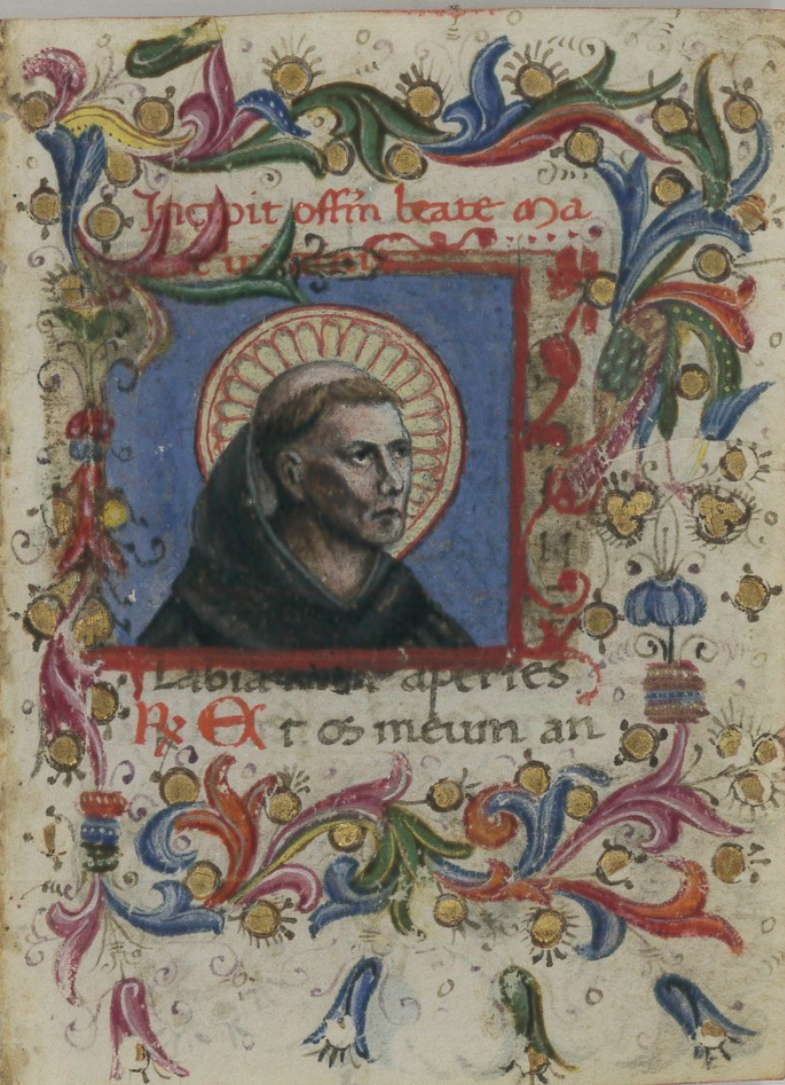 Incipit offin beate Ma
Labia aperies
℞ Et os meum an